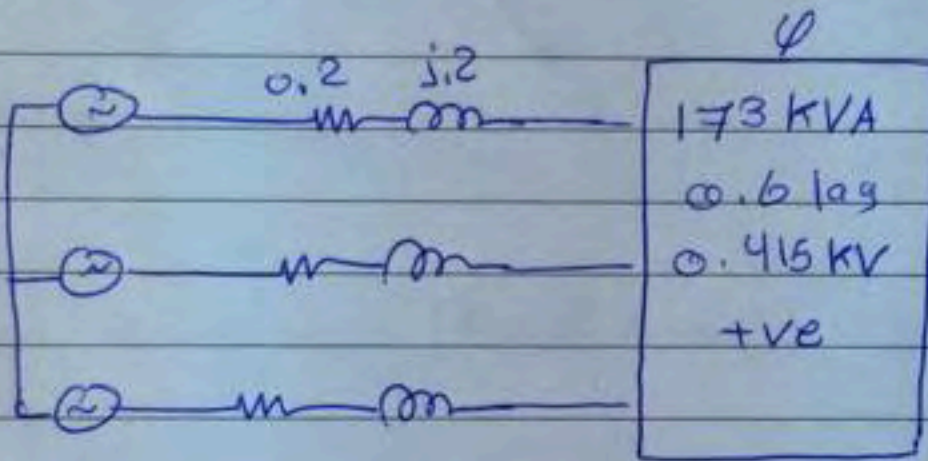 φ
0.2 j.2
173 KVA
0.6 lag
0.415 KV
+ve
~
~
~